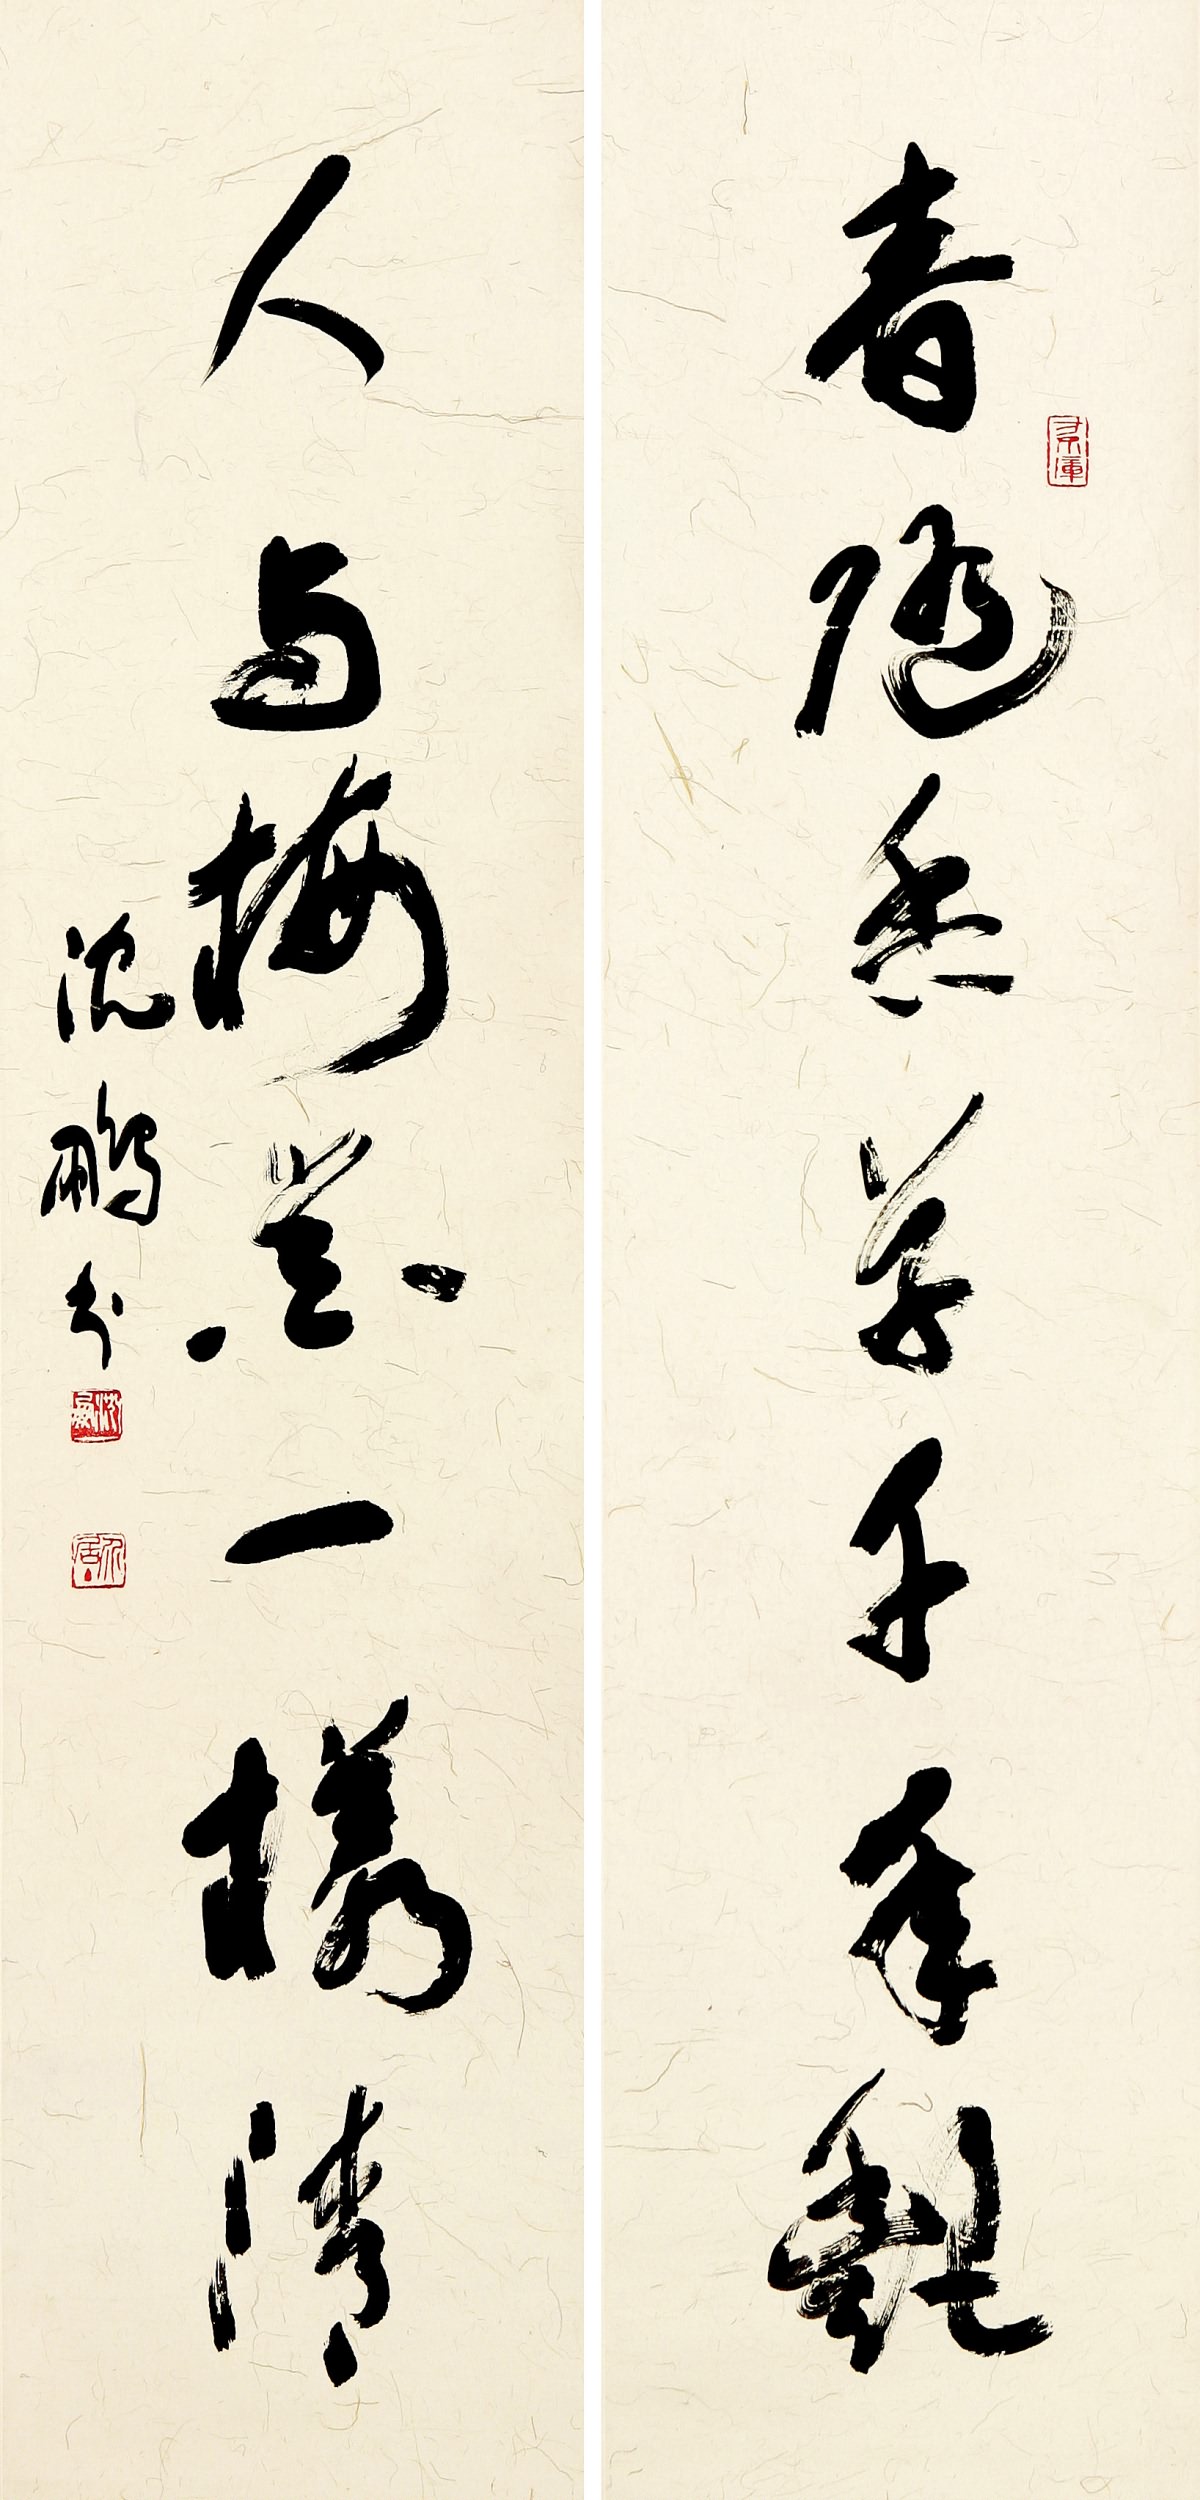 春随香草千年艳
人与梅花一样清
沈鹏书